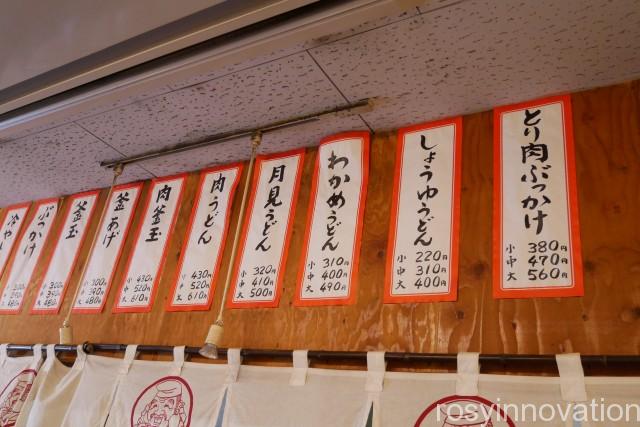 とり肉ぶっかけ
小 380円
中 470円
大 560円
しょうゆうどん
小 220円
中 310円
大 400円
わかめうどん
小 310円
中 400円
大 490円
月見うどん
小 320円
中 410円
大 500円
肉うどん
小 430円
中 520円
大 610円
肉釜玉
小 430円
中 520円
大 610円
釜あげ
小 300円
中 390円
大 480円
釜玉
小 300円
中 390円
大 480円
ぶっかけ
小 300円
中 390円
大 480円
冷やし
rosyinnovation